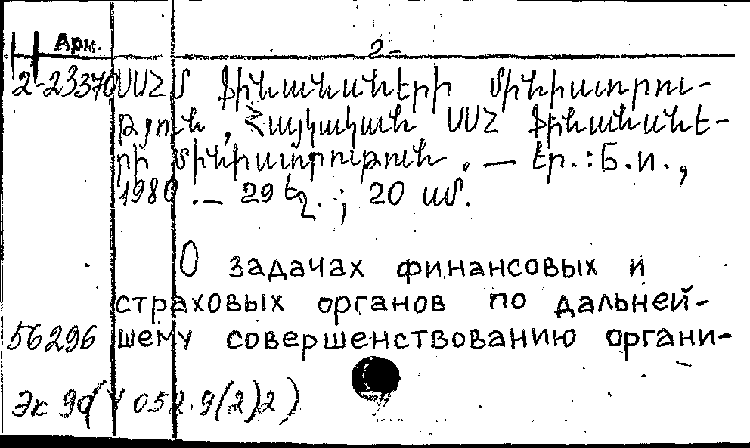 Арм.
2-
2-23370 ՍՍՀՄ ֆինանսների մինիստրու-
թյուն, Հայկական ՍՍՀ ֆինանսնե-
րի մինիստրություն. — Եր.: Б.и.,
1980. — 29 էջ.; 20 սմ.
О задачах финансовых и
страховых органов по дальней-
56296 шему совершенствованию органи-
Эк